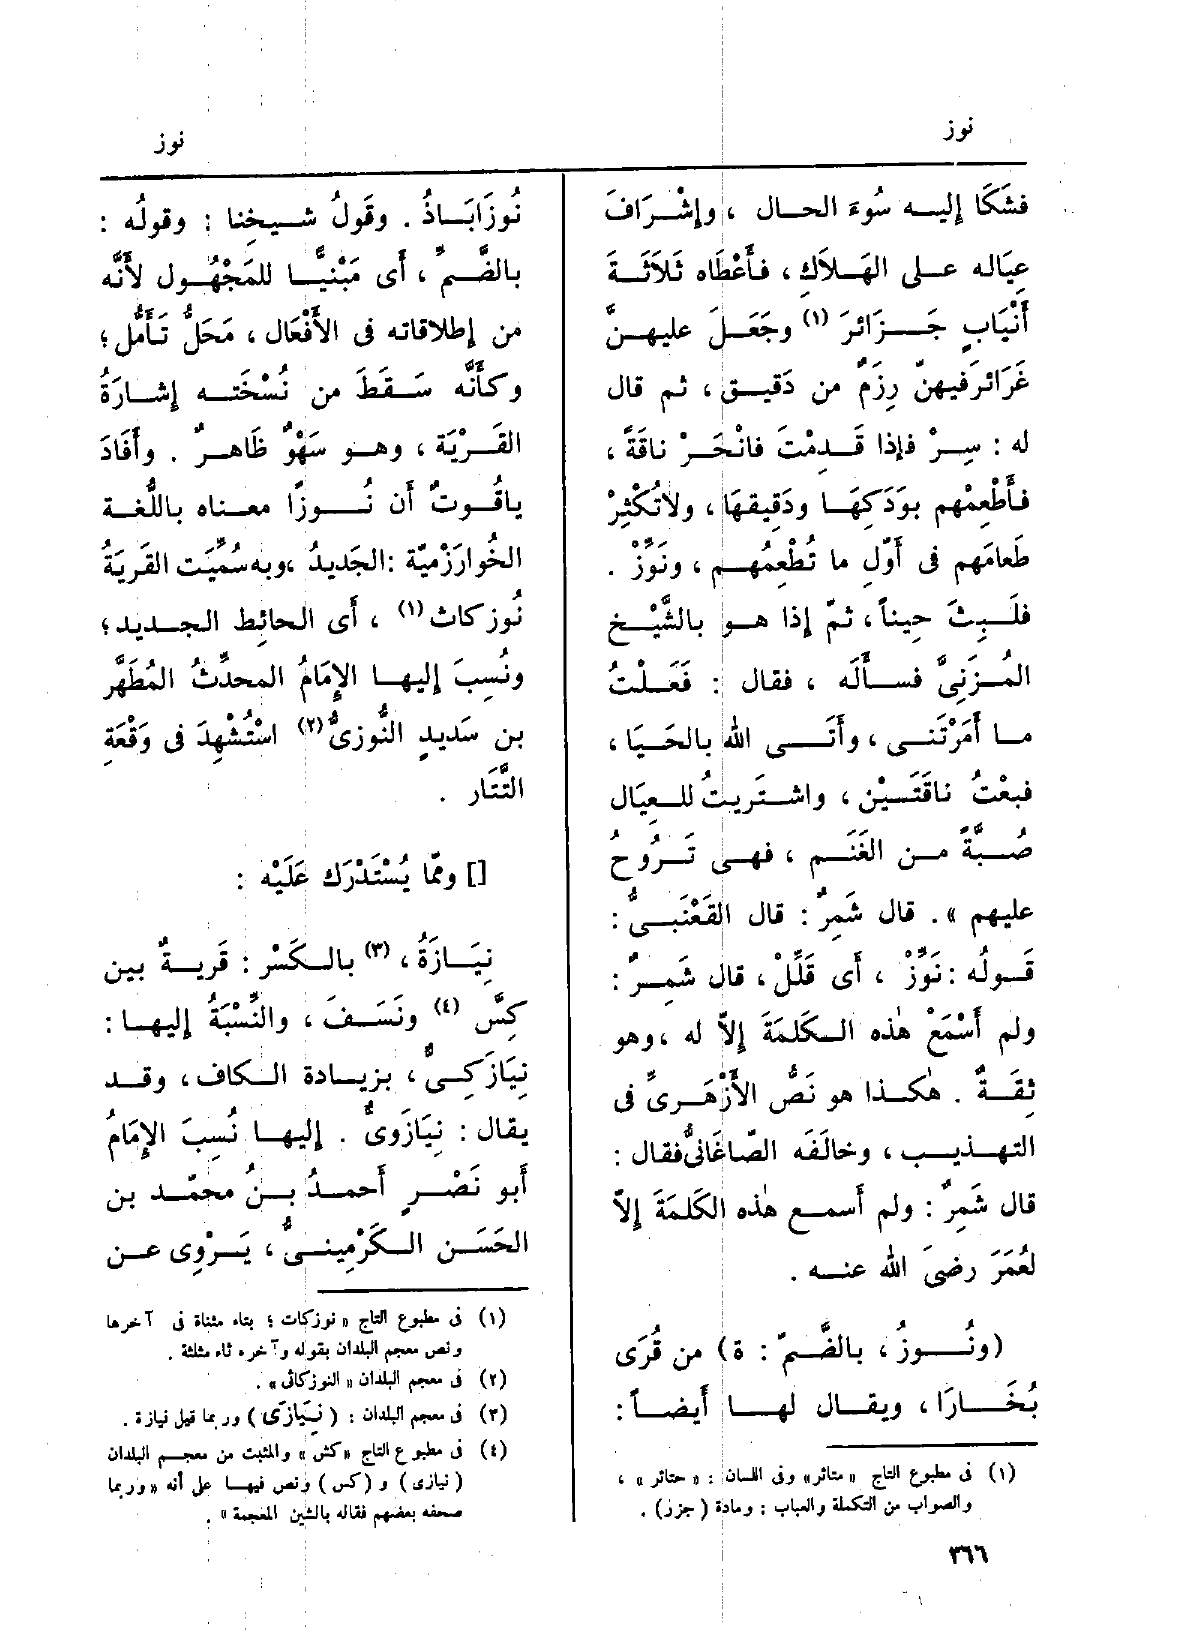 نوز
نوز
فشَكَا إليه سُوءَ الحال ، وإشْرافَ
عِيَاله على الهَلاَكِ ، فأَعْطَاه ثَلاَثَةَ
أَنْيَابٍ جَزائرَ (١) وجَعَلَ عليهنَّ
غَرَائرَ فيهنّ رِزَمٌ من دَقيق ، ثم قال
له : سِرْ فإذا قَدِمْتَ فانْحَرْ ناقَةً ،
فأَطْعِمْهم بوَدَكِهَا ودَقِيقهَا ، ولاتُكْثِرْ
طَعامَهم فى أَوّلِ ما تُطْعِمُهم ، ونَوِّزْ .
فلَبِثَ حِيناً ، ثمّ إذا هو بالشَّيْخ
المُزَنِىِّ فسأَلَه ، فقال : فَعَلْتُ
ما أَمَرْتَنى ، وأَتَى الله بالحَيَا ،
فبعْتُ ناقَتَيْن ، واشتريتُ للعِيَال
صُبَّةً من الغَنَم ، فهى تَرُوحُ
عليهم » . قال شَمِرٌ : قال القَعْنَبىُّ :
قَولُه : نَوِّزْ ، أَى قَلِّلْ ، قال شَمِرٌ :
ولم أَسْمَعْ هٰذه الكَلمَةَ إِلاّ له ، وهو
ثِقَةٌ . هٰكذا هو نَصُّ الأَزْهَرىِّ فى
التهذيب ، وخالَفَه الصّاغَانىُّ فقال :
قال شَمِرٌ : ولم أَسمع هٰذه الكَلمَةَ إلاّ
لعُمَرَ رضىَ الله عنه .
(ونُوزُ ، بالضَّمّ : ة) من قُرَى
بُخَارَا ، ويقال لها أَيضاً :
(١) فى مطبوع التاج « متائر » وفى اللسان : « حتائر » ،
والصواب من التكملة والعباب : ومادة ( جزر ) .
نُوزَابَاذُ . وقَولُ شيخِنا : وقولُه :
بالضَّمّ ، أَى مَبْنيًّا للمَجْهُول لأَنَّه
من إطلاقاته فى الأَفْعَال ، مَحَلُّ تَأَمُّل ؛
وكأَنَّه سَقَطَ من نُسْخَته إشارَةُ
القَرْيَة ، وهو سَهْوٌ ظَاهرٌ . وأَفَادَ
ياقُوتٌ أَن نُوزًا معناه باللُّغة
الخُوارَزْميّة : الجَديدُ ، وبه سُمِّيَت القَريَةُ
نُوزكاث (١) ، أَى الحائط الجديد ؛
ونُسِبَ إليها الإمَامُ المحدِّثُ المُطَهَّر
بن سَديدٍ النُّوزىُّ (٢) اسْتُشْهِدَ فى وَقْعَةِ
التَّتَار .
[] وممّا يُسْتَدْرَك عَلَيْه :
نِيَازَةُ ، (٣) بالكَسْر : قَريةٌ بين
كِسَّ (٤) ونَسَفَ ، والنِّسْبَةُ إليها :
نِيَازكِىٌّ ، بزيادة الكاف ، وقد
يقال : نِيَازَوىٌّ . إليها نُسِبَ الإمَامُ
أَبو نَصْرٍ أَحمدُ بنُ محمّد بن
الحَسَن الكَرْمِينىُّ ، يَرْوِى عن
(١) فى مطبوع التاج « نوزكات ؛ بتاء مثناة فى آخرها
ونص معجم البلدان بقوله وآخره ثاء مثلثة .
(٢) فى معجم البلدان « النوزكاثى » .
(٣) فى معجم البلدان : ( نِيَازَى ) وربما قيل نيازة .
(٤) فى مطبوع التاج « كش » والمثبت من معجم البلدان
( نيازى ) و ( كس ) ونص فيها على أنه « وربما
صحفه بعضهم فقاله بالشين المعجمة » .
٣٦٦